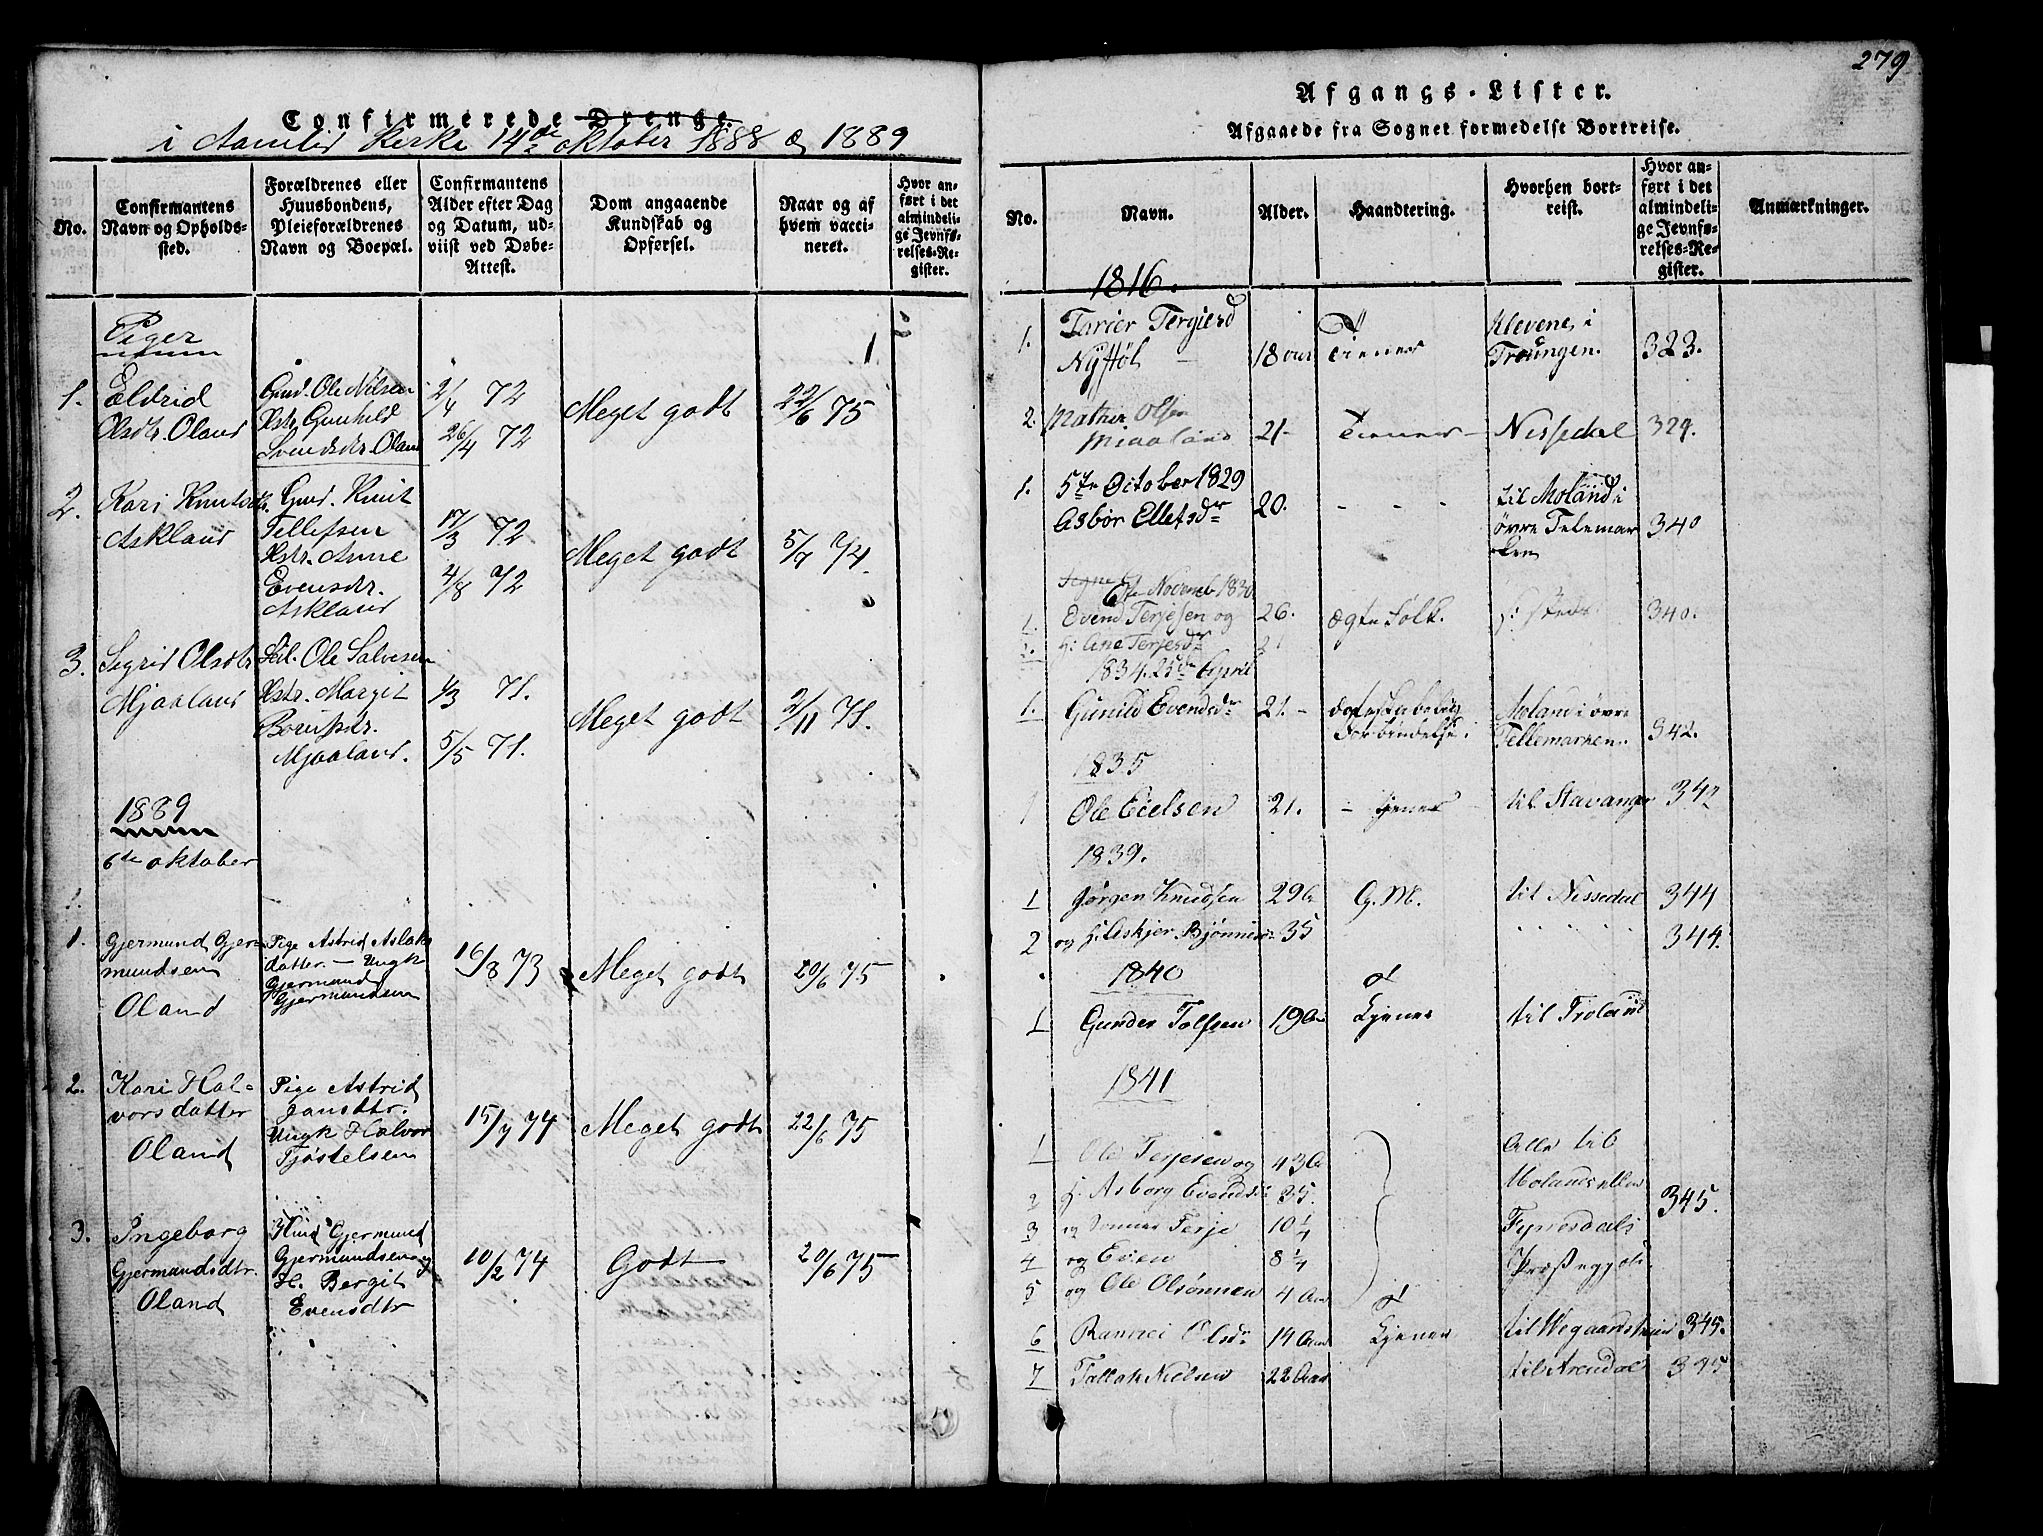 Confirmerede Drenge.
i Aamlid Kirke 14de oktober 1888 & 1889
No.
Confirmantens
Navn og Opholds-
sted.
Forældrenes eller
Huusbondens,
Pleieforældrenes
Navn og Boepæl.
Confirmantens
Alder efter Dag
og Datum, ud-
viist ved Døbe-
Attest.
Dom angaaende
Kundskab og
Opførsel.
Naar og af
hvem vacci-
neret.
Hvor an-
ført i det
almindeli-
ge Jevnfø-
relses-Re-
gister.
Piger
1. Eldrid
Olsdtr. Oland
Gmd. Ole Nilsen
Hstr. Gunhild
Svendsdtr. Oland
2/4 72
26/4 72
Meget godt
22/6 75
2. Kari Knutsdtr.
Askland
Gmd. Knut
Tellefsen
Hstr. Anne
Evensdtr.
Askland
17/3 72
4/8 72
Meget godt
5/7 74.
3. Sigrid Olsdtr.
Mjaaland
Ole Salvesen
Hstr. Margit
Mjaaland.
1/3 71.
5/5 71.
Meget godt
2/11 71.
1889
6te oktober
1.
1. Gjermund Gjer-
mundsen
Oland
Pige Astrid Aslaks
datter. — Ungk
Gjermund
Gjermundsen
16/8 73
Meget godt
29/6 75
2. Kari Hal-
vorsdatter
Oland
Pige Astrid
Jansdtr.
Ungk Halvor
Tjøstelsen
15/7 74
Meget godt
22/6 75
3. Ingeborg
Gjermundsdtr.
Oland
Gjermund
Gjermundsen og
H. Bergit
Evensdtr
10/2 74
Godt
29/6 75
279
Afgangs-Lister.
Afgaaede fra Sognet formedelst Bortreise.
No.
Navn.
Alder.
Haandtering.
Hvorhen bort-
reist.
Hvor an-
ført i det
almindeli-
ge Jevnfø-
relses-Re-
gister.
Anmærkninger.
1816.
1. Tarier Tergiesd
18 aar
Tiener
Klevene i
323.
2. Olsen
Miaaland
21-
Tiener
Nissedal
329.
5te October 1829
1. Asbør Elletsdr
20.
- - -
til Moland i
øvre Telemar
ken
340
6te Novemb 1830
1. Evend Terjesen og
26.
Ægte Folk.
340.
2. h: Ane Terjesdr
21
1834. 25de April
1. Gunild Evendsdr
21.-
Forbindelse.
Moland i øvre
Tellemarken.
342.
1835
1 Ole Eielsen
21.
- tjener
til Stavanger
342
1839.
1 Jørgen Knudsen
29
G.M.
til Nissedal
344
2 og h: Askjer
35
344.
1840
1 Gunder
19
tjener
til Froland
1841
1 Ole Terjesen og
43
Alle til
2 h. Asborg Evends
35.
345.
3 og Sønner Terje
10 1/4
Fyresdals
4 og Even
8 1/4
5 og Ole Olsønner
4 Aar
6 Rannei Olsdr
19 Aar
tjener
til Wegaardsheien
345.
7 Tallak Nielsen
22 Aar
til Arendal
345